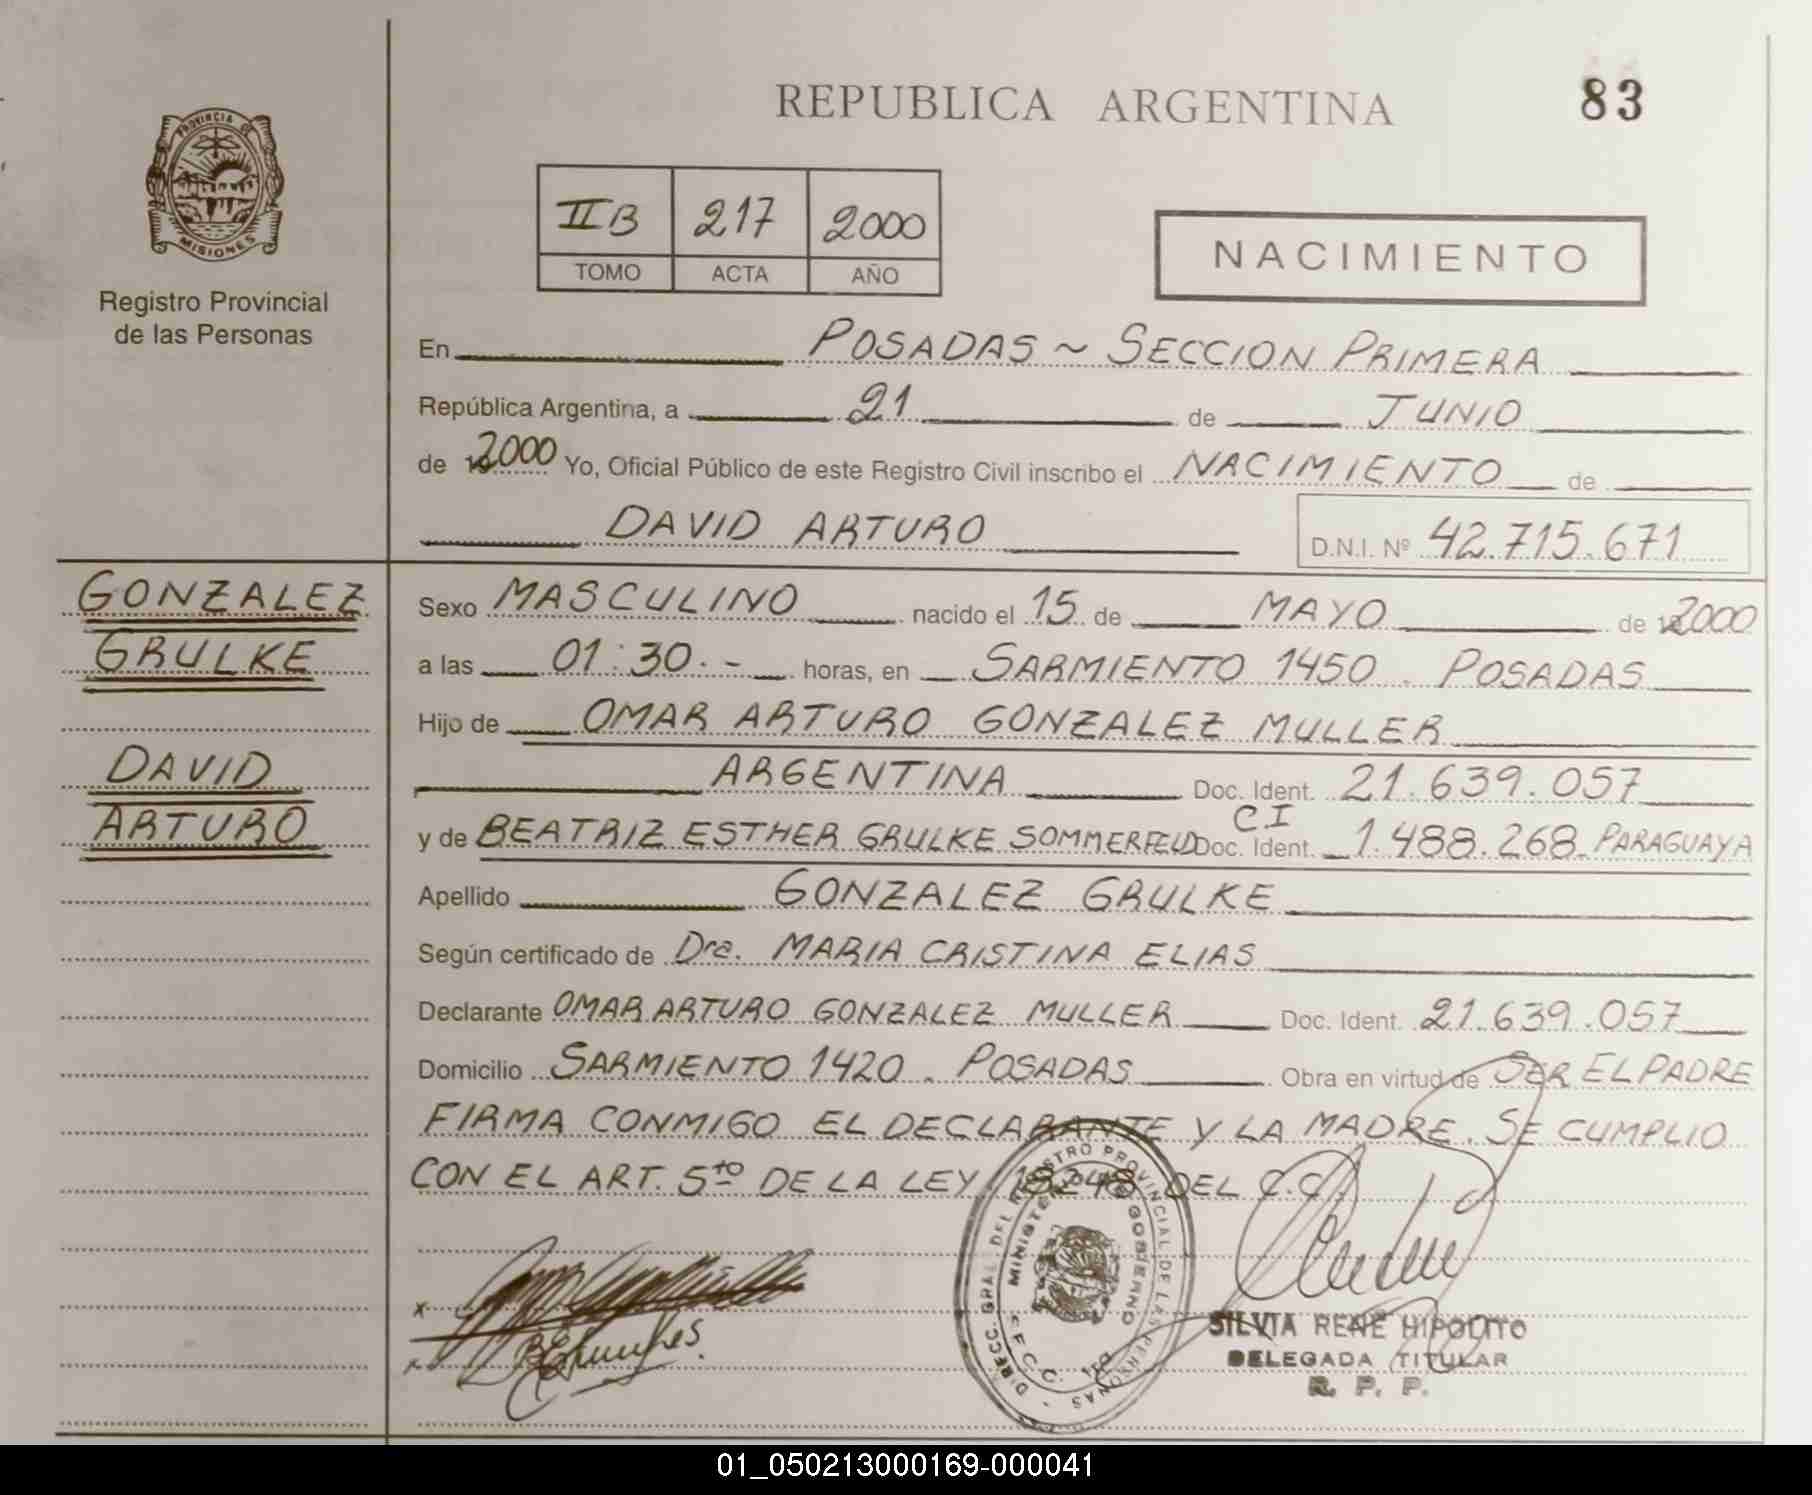 REPUBLICA ARGENTINA
83
PROVINCIA DE
MISIONES
Registro Provincial
de las Personas
II B 217 2000
TOMO ACTA AÑO
NACIMIENTO
En POSADAS ~ SECCION PRIMERA
República Argentina, a 21 de JUNIO
de 2000 Yo, Oficial Público de este Registro Civil inscribo el NACIMIENTO de
DAVID ARTURO D.N.I. Nº 42.715.671
GONZALEZ
GRULKE
DAVID
ARTURO
Sexo MASCULINO nacido el 15 de MAYO de 2000
a las 01:30.- horas, en SARMIENTO 1450. POSADAS
Hijo de OMAR ARTURO GONZALEZ MULLER
ARGENTINA Doc. Ident. 21.639.057
CI
y de BEATRIZ ESTHER GRULKE SOMMERFELD Doc. Ident. 1.488.268 PARAGUAYA
Apellido GONZALEZ GRULKE
Según certificado de Dra. MARIA CRISTINA ELIAS
Declarante OMAR ARTURO GONZALEZ MULLER Doc. Ident. 21.639.057
Domicilio SARMIENTO 1420. POSADAS Obra en virtud de SER EL PADRE
FIRMA CONMIGO EL DECLARANTE Y LA MADRE. SE CUMPLIO
CON EL ART. 5to DE LA LEY 18248 DEL C.C.
DIRECC. GRAL. DEL REGISTRO PROVINCIAL DE LAS PERSONAS
MINISTERIO DE GOBIERNO
SILVIA RENÉ HIPOLITO
DELEGADA TITULAR
R. P. P.
01_050213000169-000041